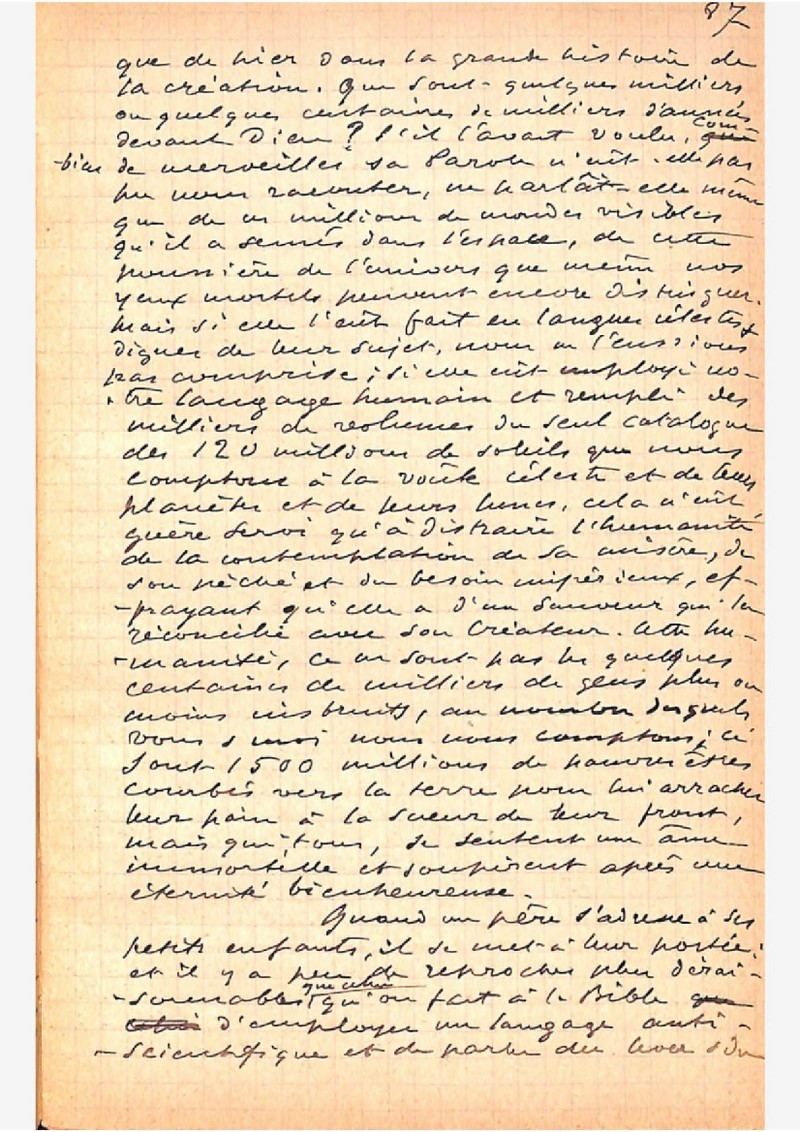 87
que de hier dans la grande histoire de
la création. Que sont quelques milliers
ou quelques centaines de milliers d'années
devant Dieu ? S'il l'avait voulu, com-
-bien de merveilles sa Parole n'eût-elle pas
pu nous raconter, ne parlât-elle même
que de ces millions de mondes visibles
qu'il a semés dans l'espace, de cette
poussière de l'univers que même nos
yeux mortels peuvent encore distinguer.
Mais si elle l'eût fait en langues célestes
dignes de leur sujet, nous ne l'eussions
pas comprise ; si elle eût employé no-
-tre langage humain et rempli des
milliers de volumes du seul catalogue
des 120 millions de soleils que nous
comptons à la voûte céleste et de leurs
planètes et de leurs lunes, cela n'eût
guère servi qu'à distraire l'humanité
de la contemplation de sa misère, de
son péché et du besoin impérieux, ef-
-frayant qu'elle a d'un Sauveur qui la
réconcilie avec son Créateur. Cette hu-
-manité, ce ne sont pas les quelques
centaines de milliers de gens plus ou
moins instruits, au nombre desquels
vous & moi nous nous comptons ; ce
sont 1500 millions de pauvres êtres
courbés vers la terre pour lui arracher
leur pain à la sueur de leur front,
mais qui, tous, se sentent une âme
immortelle et soupirent après une
éternité bienheureuse.
Quand un père s'adresse à ses
petits enfants, il se met à leur portée ;
et il y a peu de reproches plus dérai-
-sonnables que celui qu'on fait à la Bible
d'employer un langage anti-
-scientifique et de parler du lever & du